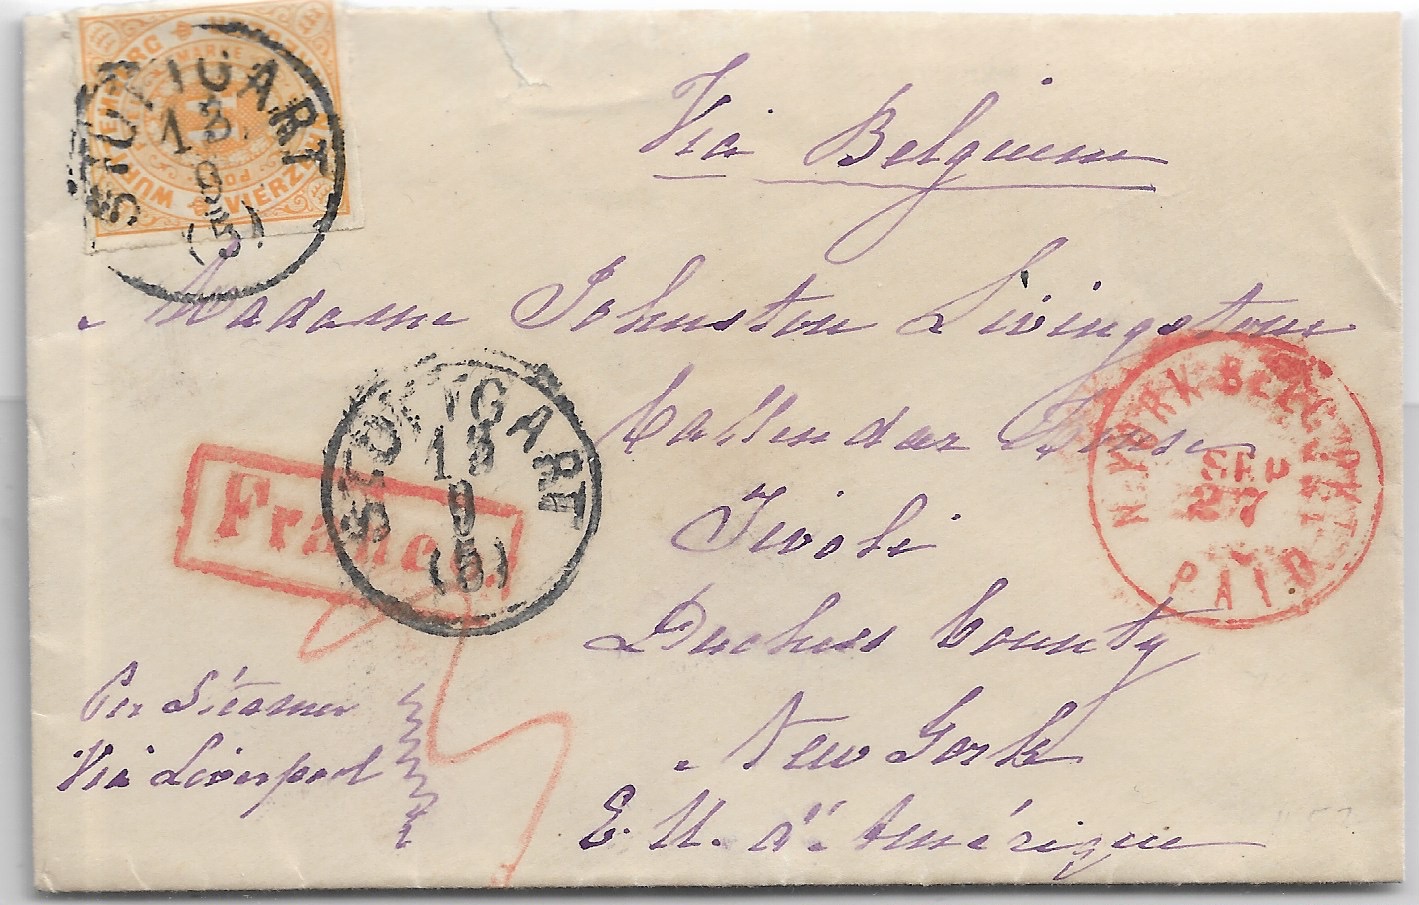 WÜRTTEMBERG
VIERZEHN
STUTTGART
13.
9
(5)
Via Belgium
Madame Johnston Livingston
Callendar House
Tivoli
Duchess County
New York
E. U. d'Amérique
STUTTGART
13
9
(5)
Franco.
N. YORK BELG. TRANSIT
SEP
27
PAID
Per Steamer
Via Liverpool